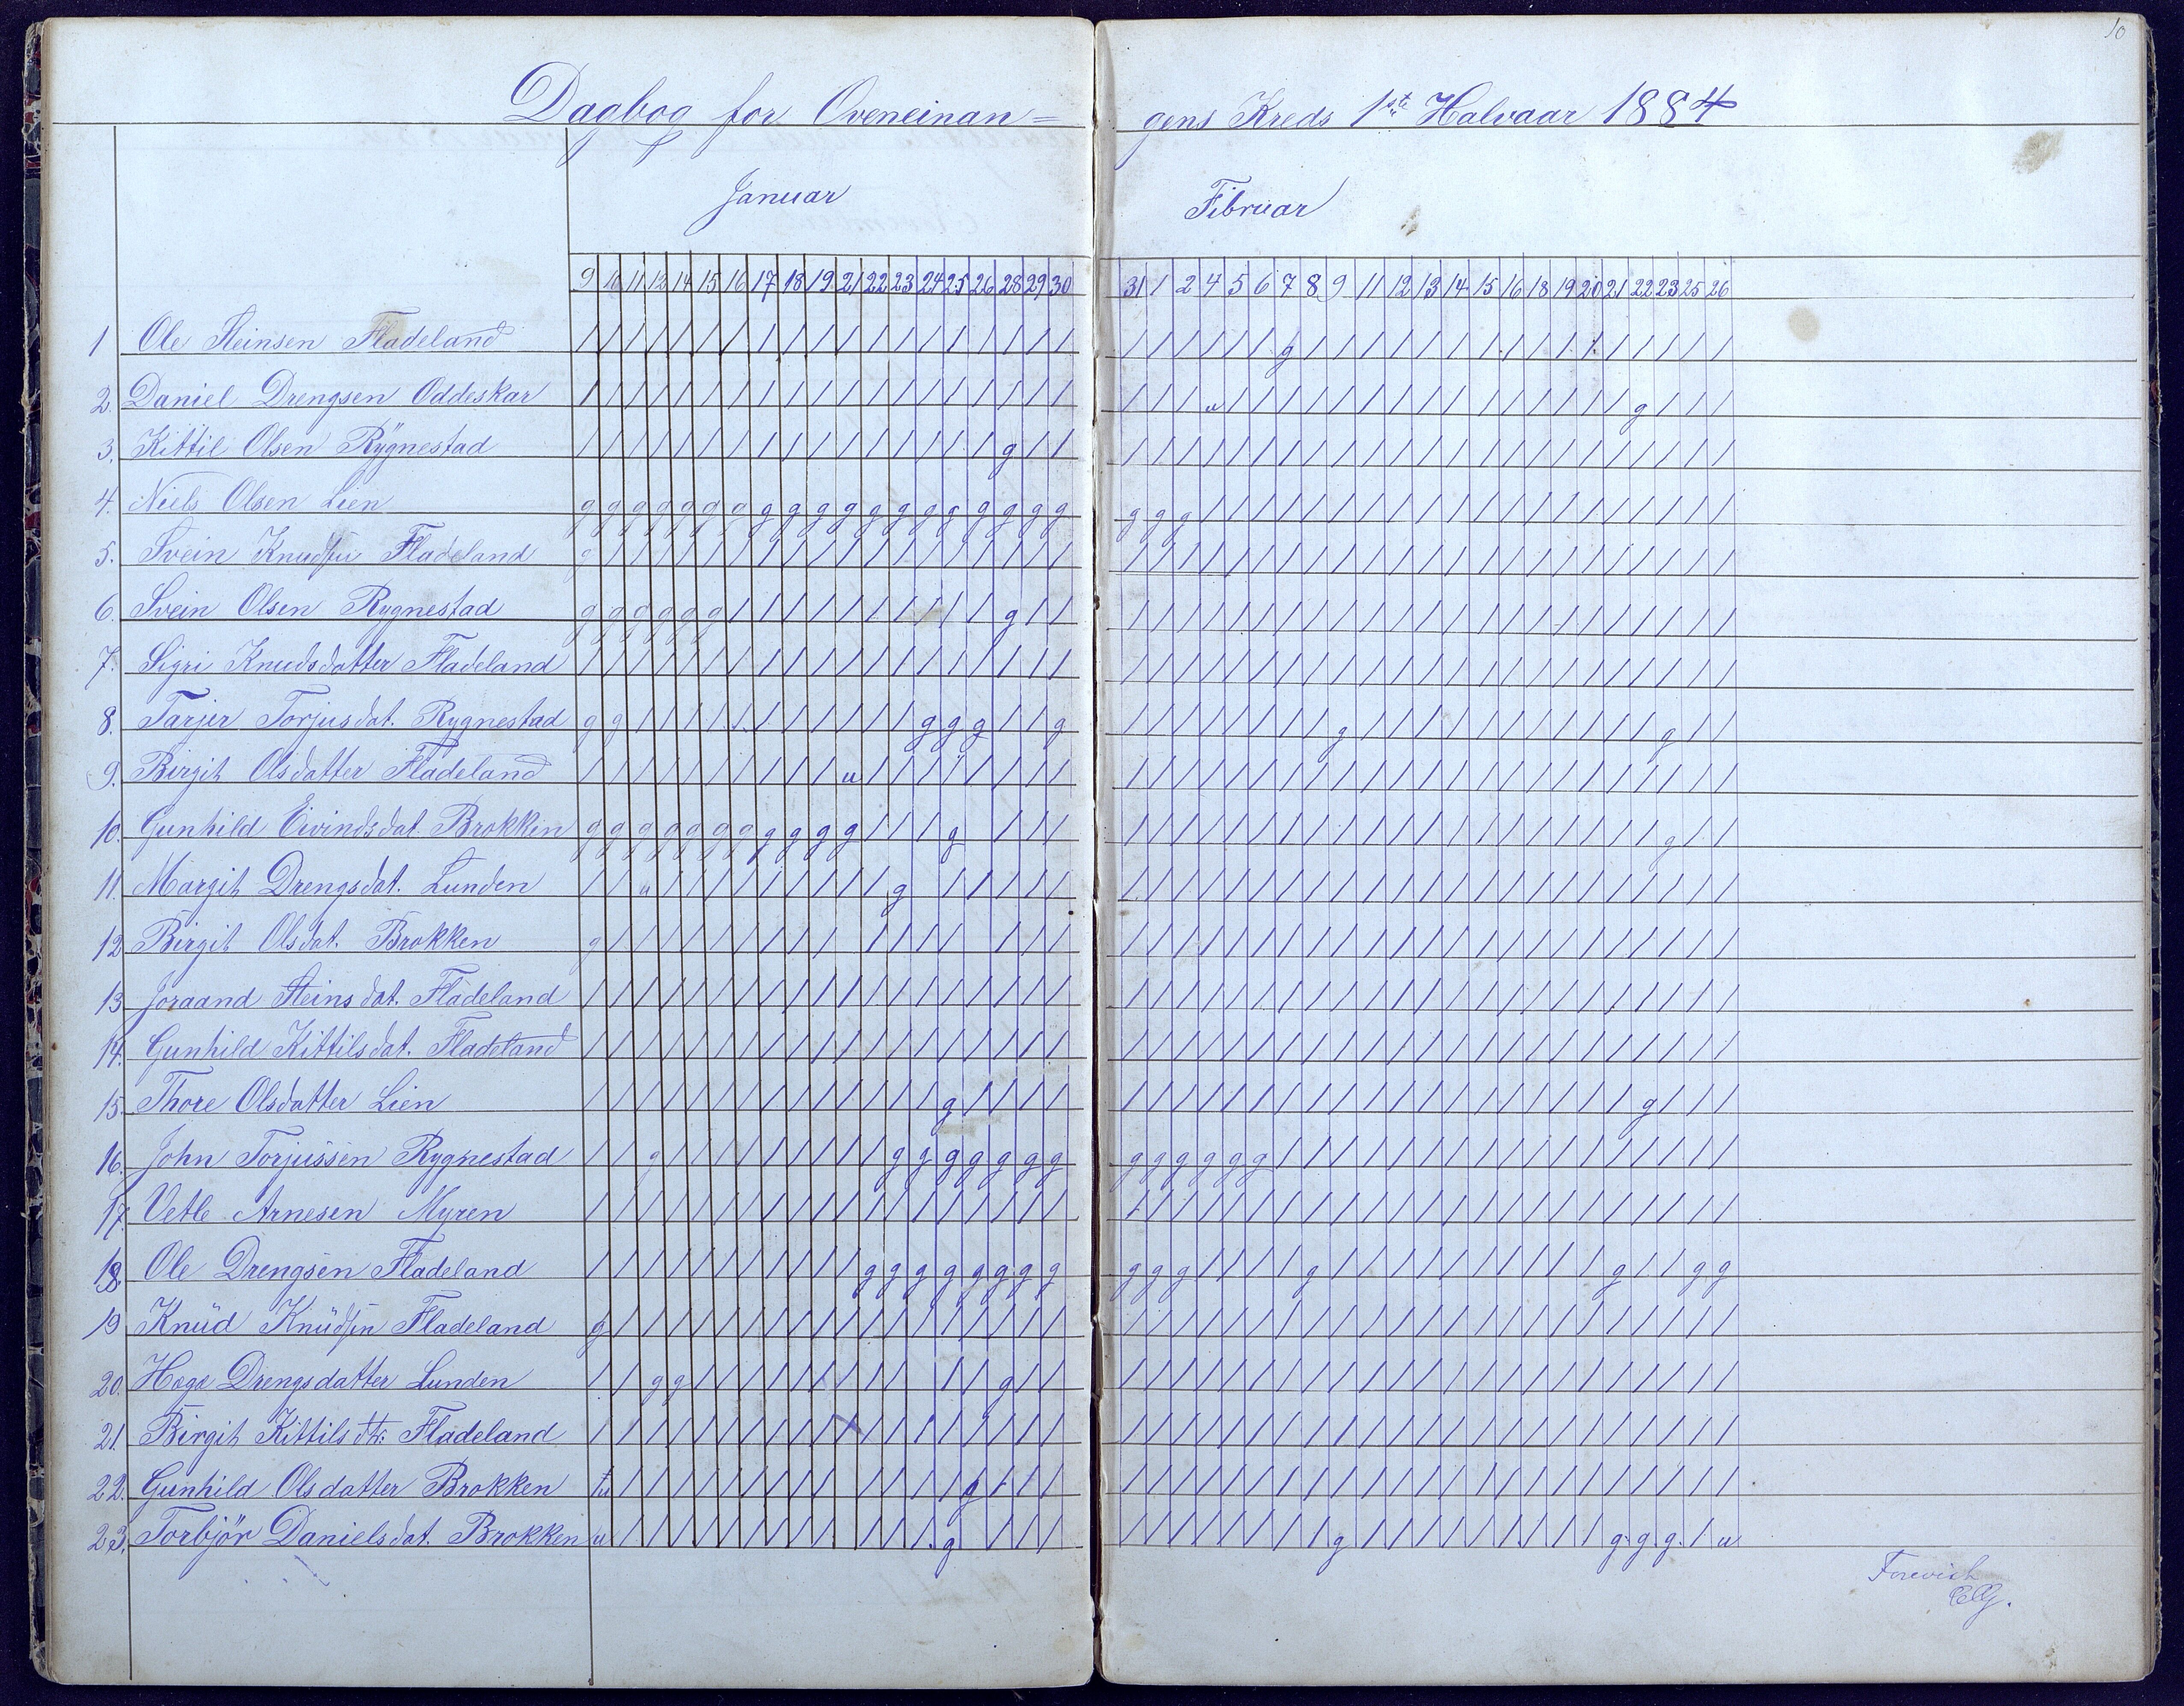 10
Dagbog for Oveneinan= gens Kreds 1ste Halvaar 1884
Januar Fibruar
9 10 11 12 14 15 16 17 18 19 21 22 23 24 25 26 28 29 30 31 1 2 4 5 6 7 8 9 11 12 13 14 15 16 18 19 20 21 22 23 25 26
1 Ole Steinsen Fladeland / / / / / / / / / / / / / / / / / / / / / / / / / g / / / / / / / / / / / / / / / /
2. Daniel Drengsen Oddeskar / / / / / / / / / / / / / / / / / / / / / / u / / / / / / / / / / / / / / / g / / /
3. Kittil Olsen Rÿgnestad / / / / / / / / / / / / / / / / g / / / / / / / / / / / / / / / / / / / / / / / / /
4. Niels Olsen Lien g g g g g g g g g g g g g g g g g g g g g g / / / / / / / / / / / / / / / / / / / /
5. Svein Knudsen Fladeland g / / / / / / / / / / / / / / / / / / / / / / / / / / / / / / / / / / / / / / / / /
6. Svein Olsen Rygnestad g g g g g g / / / / / / / / / / g / / / / / / / / / / / / / / / / / / / / / / / / /
7. Sigri Knudsdatter Fladeland / / / / / / / / / / / / / / / / / / / / / / / / / / / / / / / / / / / / / / / / / /
8. Tarjer Torjusdat. Rygnestad g g / / / / / / / / / / / g g g / / g / / / / / / / / g / / / / / / / / / / / g / /
9. Birgit Olsdatter Fladeland / / / / / / / / / / u / / / / / / / / / / / / / / / / / / / / / / / / / / / / / / /
10. Gunhild Eivindsdat. Brokken g g g g g g g g g g g / / / g / / / / / / / / / / / / / / / / / / / / / / / g / /
11. Margit Drengsdat. Lunden / / u / / / / / / / / / g / / / / / / / / / / / / / / / / / / / / / / / / / / / /
12 Birgit Olsdat. Brokken g / / / / / / / / / / / / / / / / / / / / / / / / / / / / / / / / / / / / / / /
13 Joraand Steinsdat. Fladeland / / / / / / / / / / / / / / / / / / / / / / / / / / / / / / / / / / / / / / / / / /
14. Gunhild Kittilsdat. Fladeland / / / / / / / / / / / / / / / / / / / / / / / / / / / / / / / / / / / / / / / / / /
15. Thore Olsdatter Lien / / / / / / / / / / / / / / g / / / / / / / / / / / / / / / / / / / / / / / g / / /
16. John Torjussen Rygnestad / / g / / / / / / / / / g g g g g g g g g g g g g / / / / / / / / / / / / / / / / /
17. Vetle Arnesen Myren / / / / / / / / / / / / / / / / / / / / / / / / / / / / / / / / / / / / / / / / / /
18. Ole Drengsen Fladeland / / / / / / / / / / / g g g g g g g g g g g / / / / g / / / / / / / / / / g / / g g
19 Knud Knudsen Fladeland g / / / / / / / / / / / / / / / / / / / / / / / / / / / / / / / / / / / / / / / / /
20. Hoge Drengsdatter Lunden / / g g / / / / / / / / / / / g / / / / / / / / / / / / / / / / / / / / / / / / /
21. Birgit Kittilsdtr. Fladeland / / / / / / / / / / / / / / / / / / / / / / / / / / / / / / / / / / / / / / / / / /
22. Gunhild Olsdatter Brokken u / / / / / / / / / / / / / g / / / / / / / / / / / / / / / / / / / / / / / / / /
23. Torbjör Danielsdat. Brokken u / / / / / / / / / / / / g / / / / / / / / / / / g / / / / / / / / / g g g / u